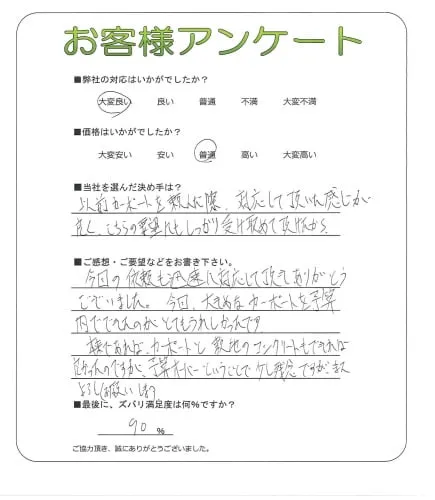 お客様アンケート
■弊社の対応はいかがでしたか？
大変良い 良い 普通 不満 大変不満
■価格はいかがでしたか？
大変安い 安い 普通 高い 大変高い
■当社を選んだ決め手は？
以前カーポートを頼んだ際、対応して頂いた感じが
良く、こちらの要望にもしっかり受け取めて頂けたから。
■ご感想・ご要望などをお書き下さい。
今回の依頼も迅速に対応して頂きありがとう
ございました。今回、大きめなカーポートを予算
内でできたのがとてもうれしかったです
カーポートと敷地のコンクリートもできれば
良かったのですが、予算オーバーということで少し残念ですが、また
よろしくお願いします
■最後に、ズバリ満足度は何％ですか？
90 ％
ご協力頂き、誠にありがとうございました。